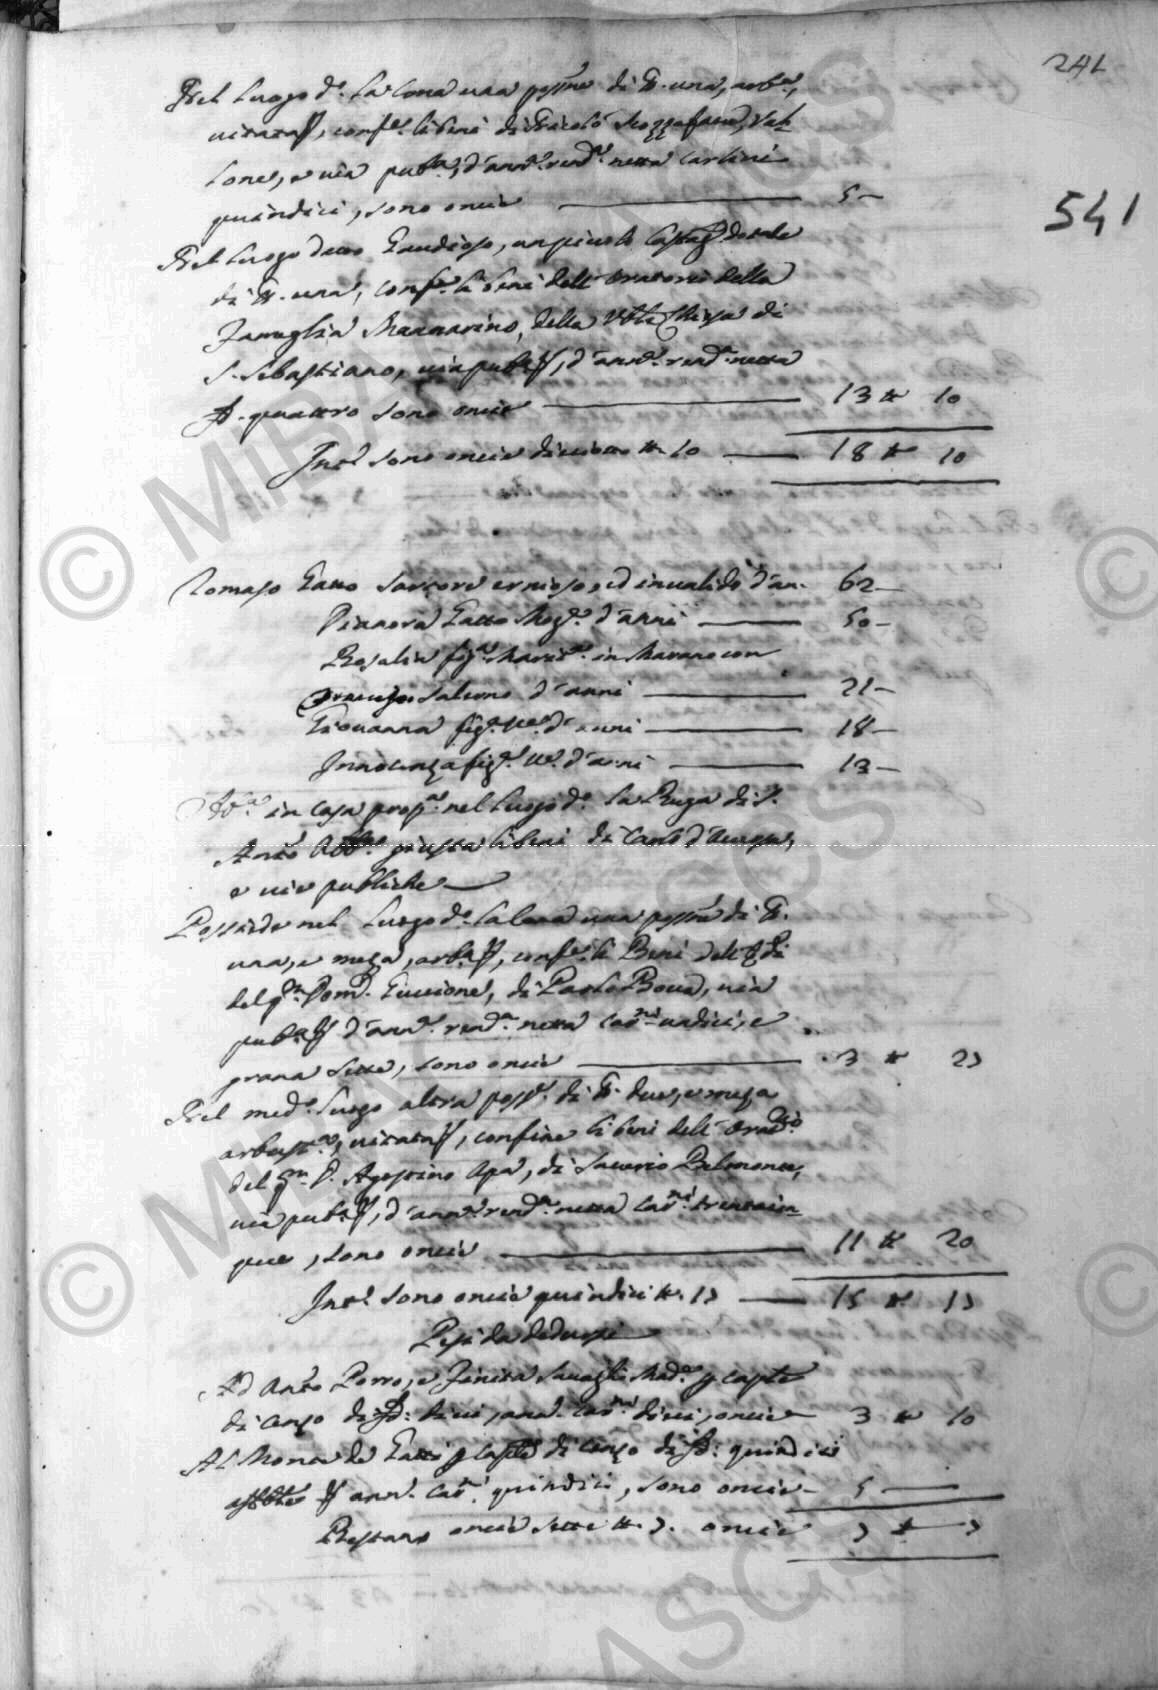 241
541
Nel luogo d.o La Cona una poss.ne di tt. una, arb.a,
vitata &, conf.e li beni di Nicolò Mozzafave, Val
lone, e via pub.a, d'ann.a rend.a netta carlini
quindici, sono oncie 5
Nel luogo detto Gaudioso, un piccolo Castag.o dotale
di tt. una, conf.e li beni dell'Oratorio della
Famiglia Mannarino, della Ven.le Chiesa di
S. Sebastiano, via pub.a &, d'ann.a rend.a netta
D. quattro sono oncie 13 tt 10
Int.o sono oncie dieciotto tt. 10 18 tt 10
Tomaso Gatto Sartore ernioso, ed invalido d'an. 62
Dianora Gatto Mog.e d'anni 50
Rosalia fig.a Marit.a in Marano con
Francesco Salerno d'anni 21
Giovanna fig.a d'anni 18
Innocenza fig.a d'anni 13
Ab.a in casa prop.a nel luogo d.o la Ruga di S.
Ant.o giusta li beni di Carlo
e vie publiche
Possiede nel luogo d.o la Cona una poss.ne di tt.
una, e meza, arb.a &, conf.e li Beni dell'Eredi
del q.m Dom.o Guccione, di Paolo Bova, via
pub.a & d'ann.a rend.a netta car.ni undici, e
grana sette, sono oncie 3 tt 23
Nel med.o luogo altra poss.e di tt. due, e meza
arbust.a, vitata &, confine li beni dell'
del q.m D. Agostino Apa, di Saverio Belmonte,
via pub.a &, d'ann.a rend.a netta car.ni trentacin
que, sono oncie 11 tt 20
Int.o sono oncie quindici tt. 13 15 tt 13
Pesi da dedursi
Ad Ant.o Porro, e p caple
di censo di D: dieci, ann. car.ni dieci, oncie 3 tt 10
Al Monte de Gatti p caple di censo di D: quindici
& ann. car.ni quindici, sono oncie 5
Restano oncie sette tt. 3. oncie 7 tt 3
© MIBAC ASCS
© MIBAC ASCS